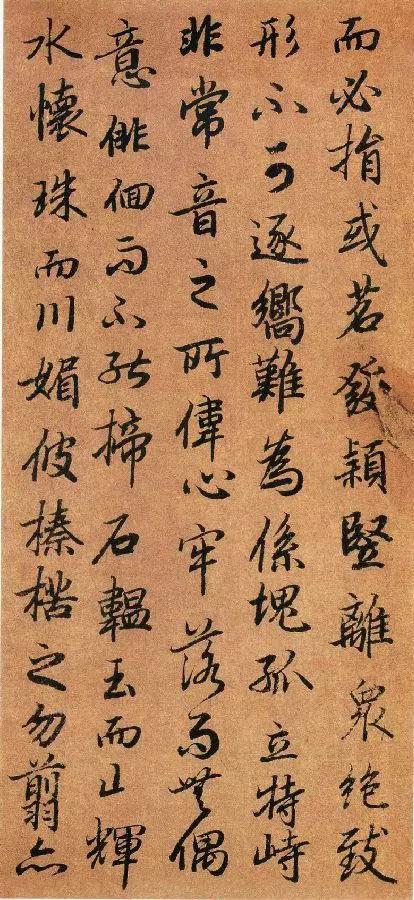 而必捐或苕發穎竪離衆絶致
形不可逐嚮難為係塊孤立特峙
非常音之所偉心牢落而無偶
意俳佪而不能揥石韞玉而山輝
水懷珠而川媚彼榛楛之勿翦亦